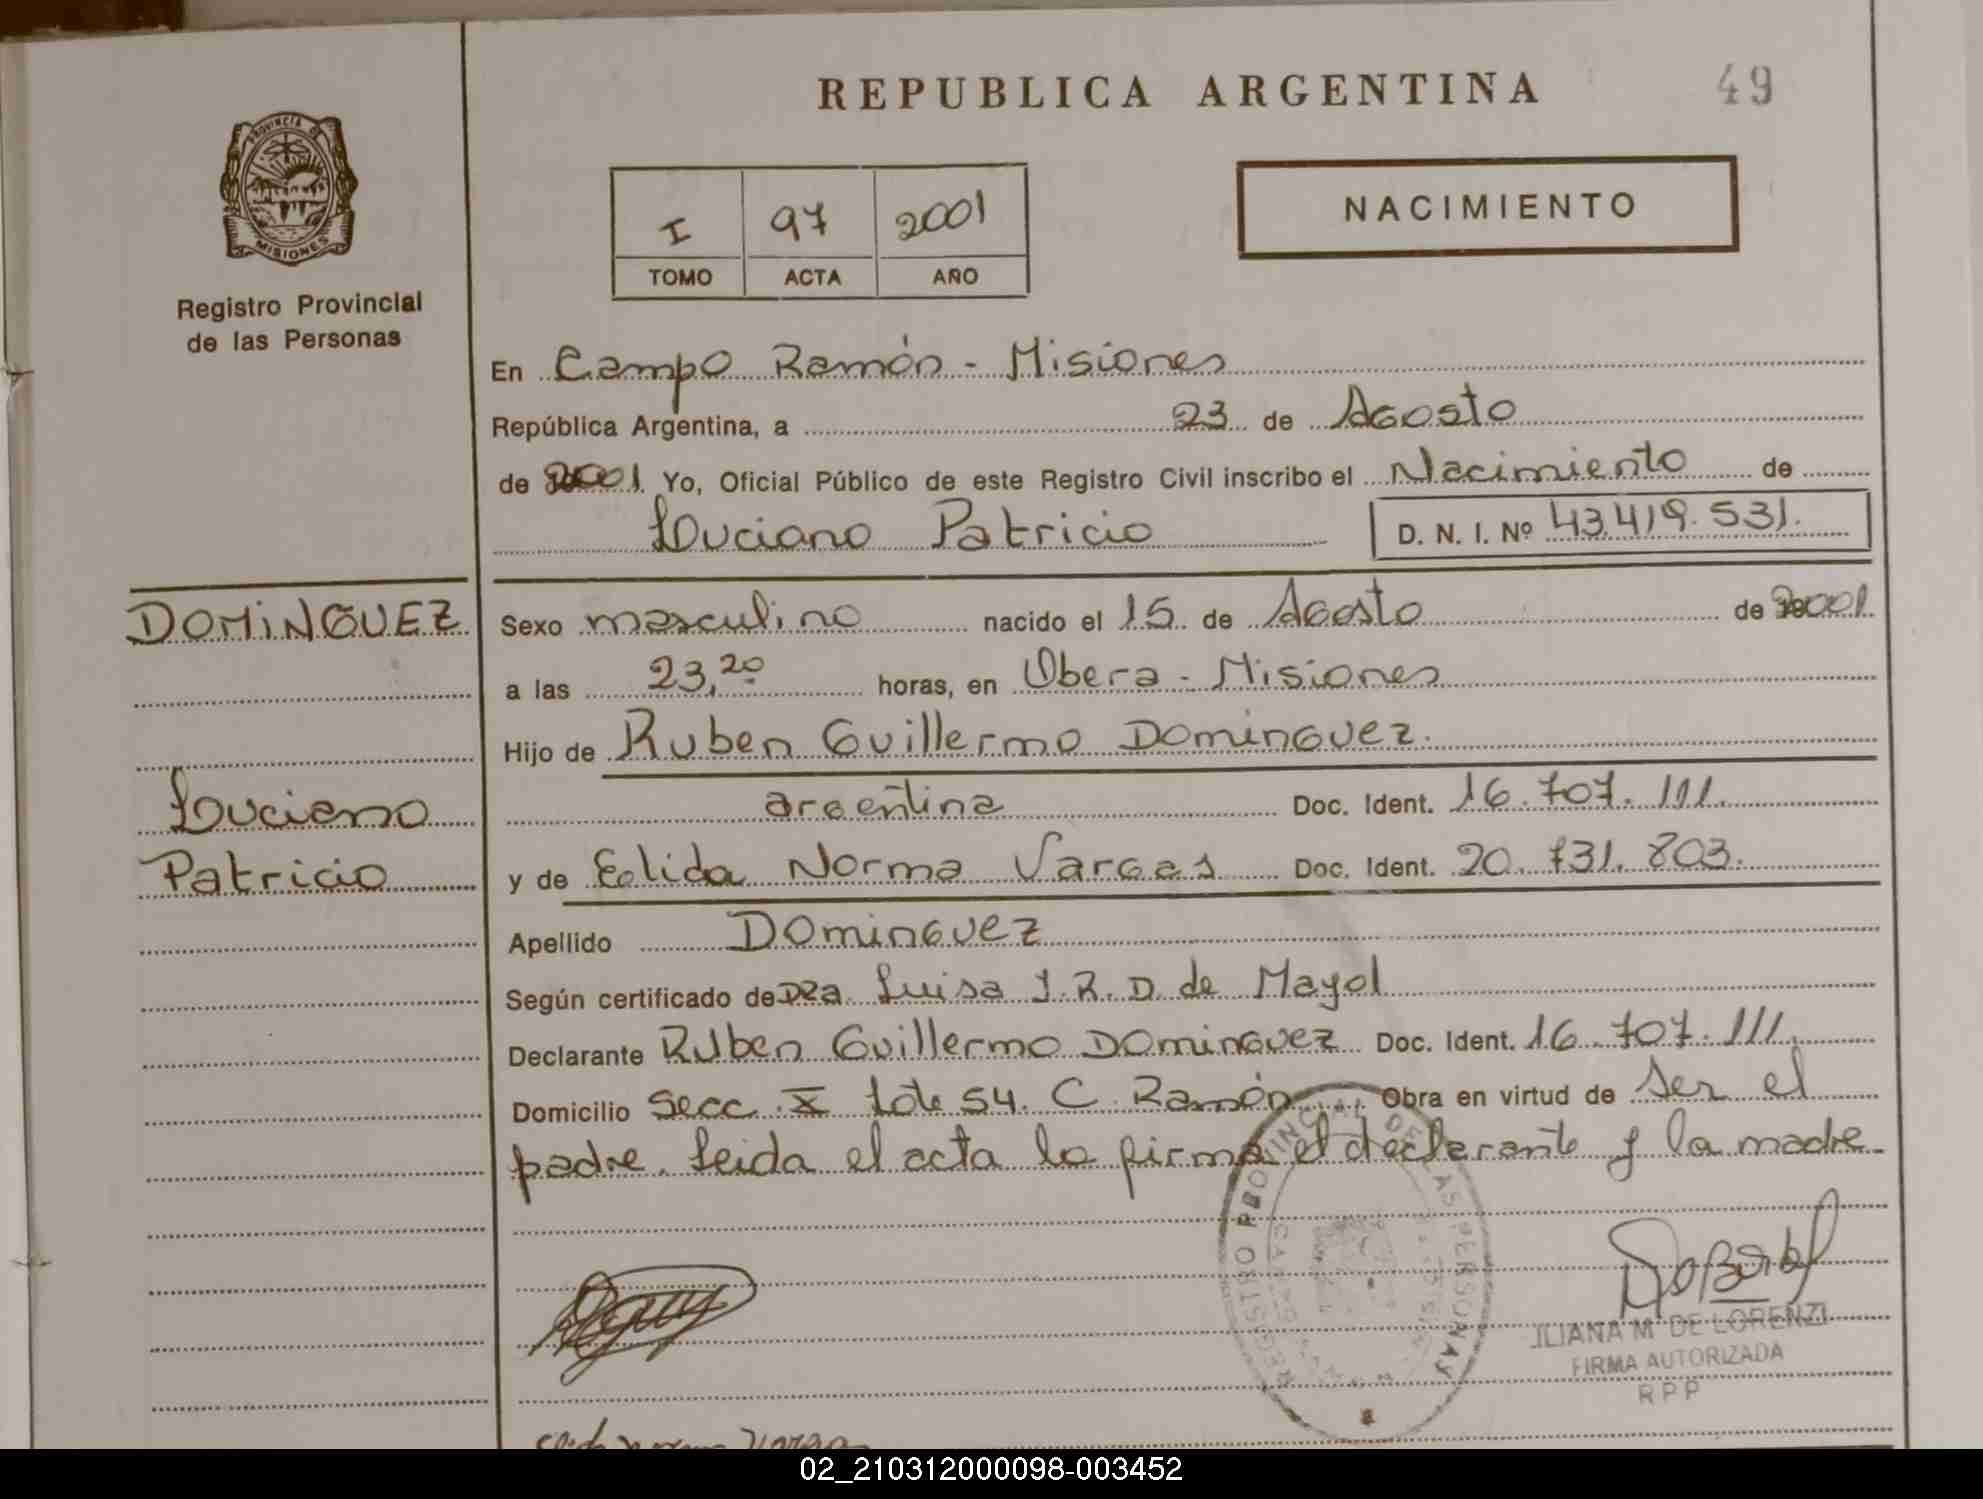 REPUBLICA ARGENTINA
49
PROVINCIA DE
MISIONES
Registro Provincial
de las Personas
I 97 2001
TOMO ACTA AÑO
NACIMIENTO
En Campo Ramón - Misiones
República Argentina, a 23 de Agosto
de 2001. Yo, Oficial Público de este Registro Civil inscribo el Nacimiento de
Luciano Patricio D. N. I. Nº 43.419.531.
DOMINGUEZ
Sexo masculino nacido el 15 de Agosto de 2001.
a las 23,20 horas, en Obera - Misiones
Hijo de Ruben Guillermo Dominguez.
Luciano
argentina Doc. Ident. 16.707.111.
Patricio
y de Elida Norma Vargas Doc. Ident. 20.731.803.
Apellido Dominguez
Según certificado de Dra. Luisa J. R. D. de Mayol
Declarante Ruben Guillermo Dominguez Doc. Ident. 16.707.111.
Domicilio Secc. X lote 54. C. Ramón Obra en virtud de ser el
padre. Leida el acta la firma el declarante y la madre.
REGISTRO PROVINCIAL DE LAS PERSONAS
ILIANA Mª DE LORENZI
FIRMA AUTORIZADA
R P P
02_210312000098-003452